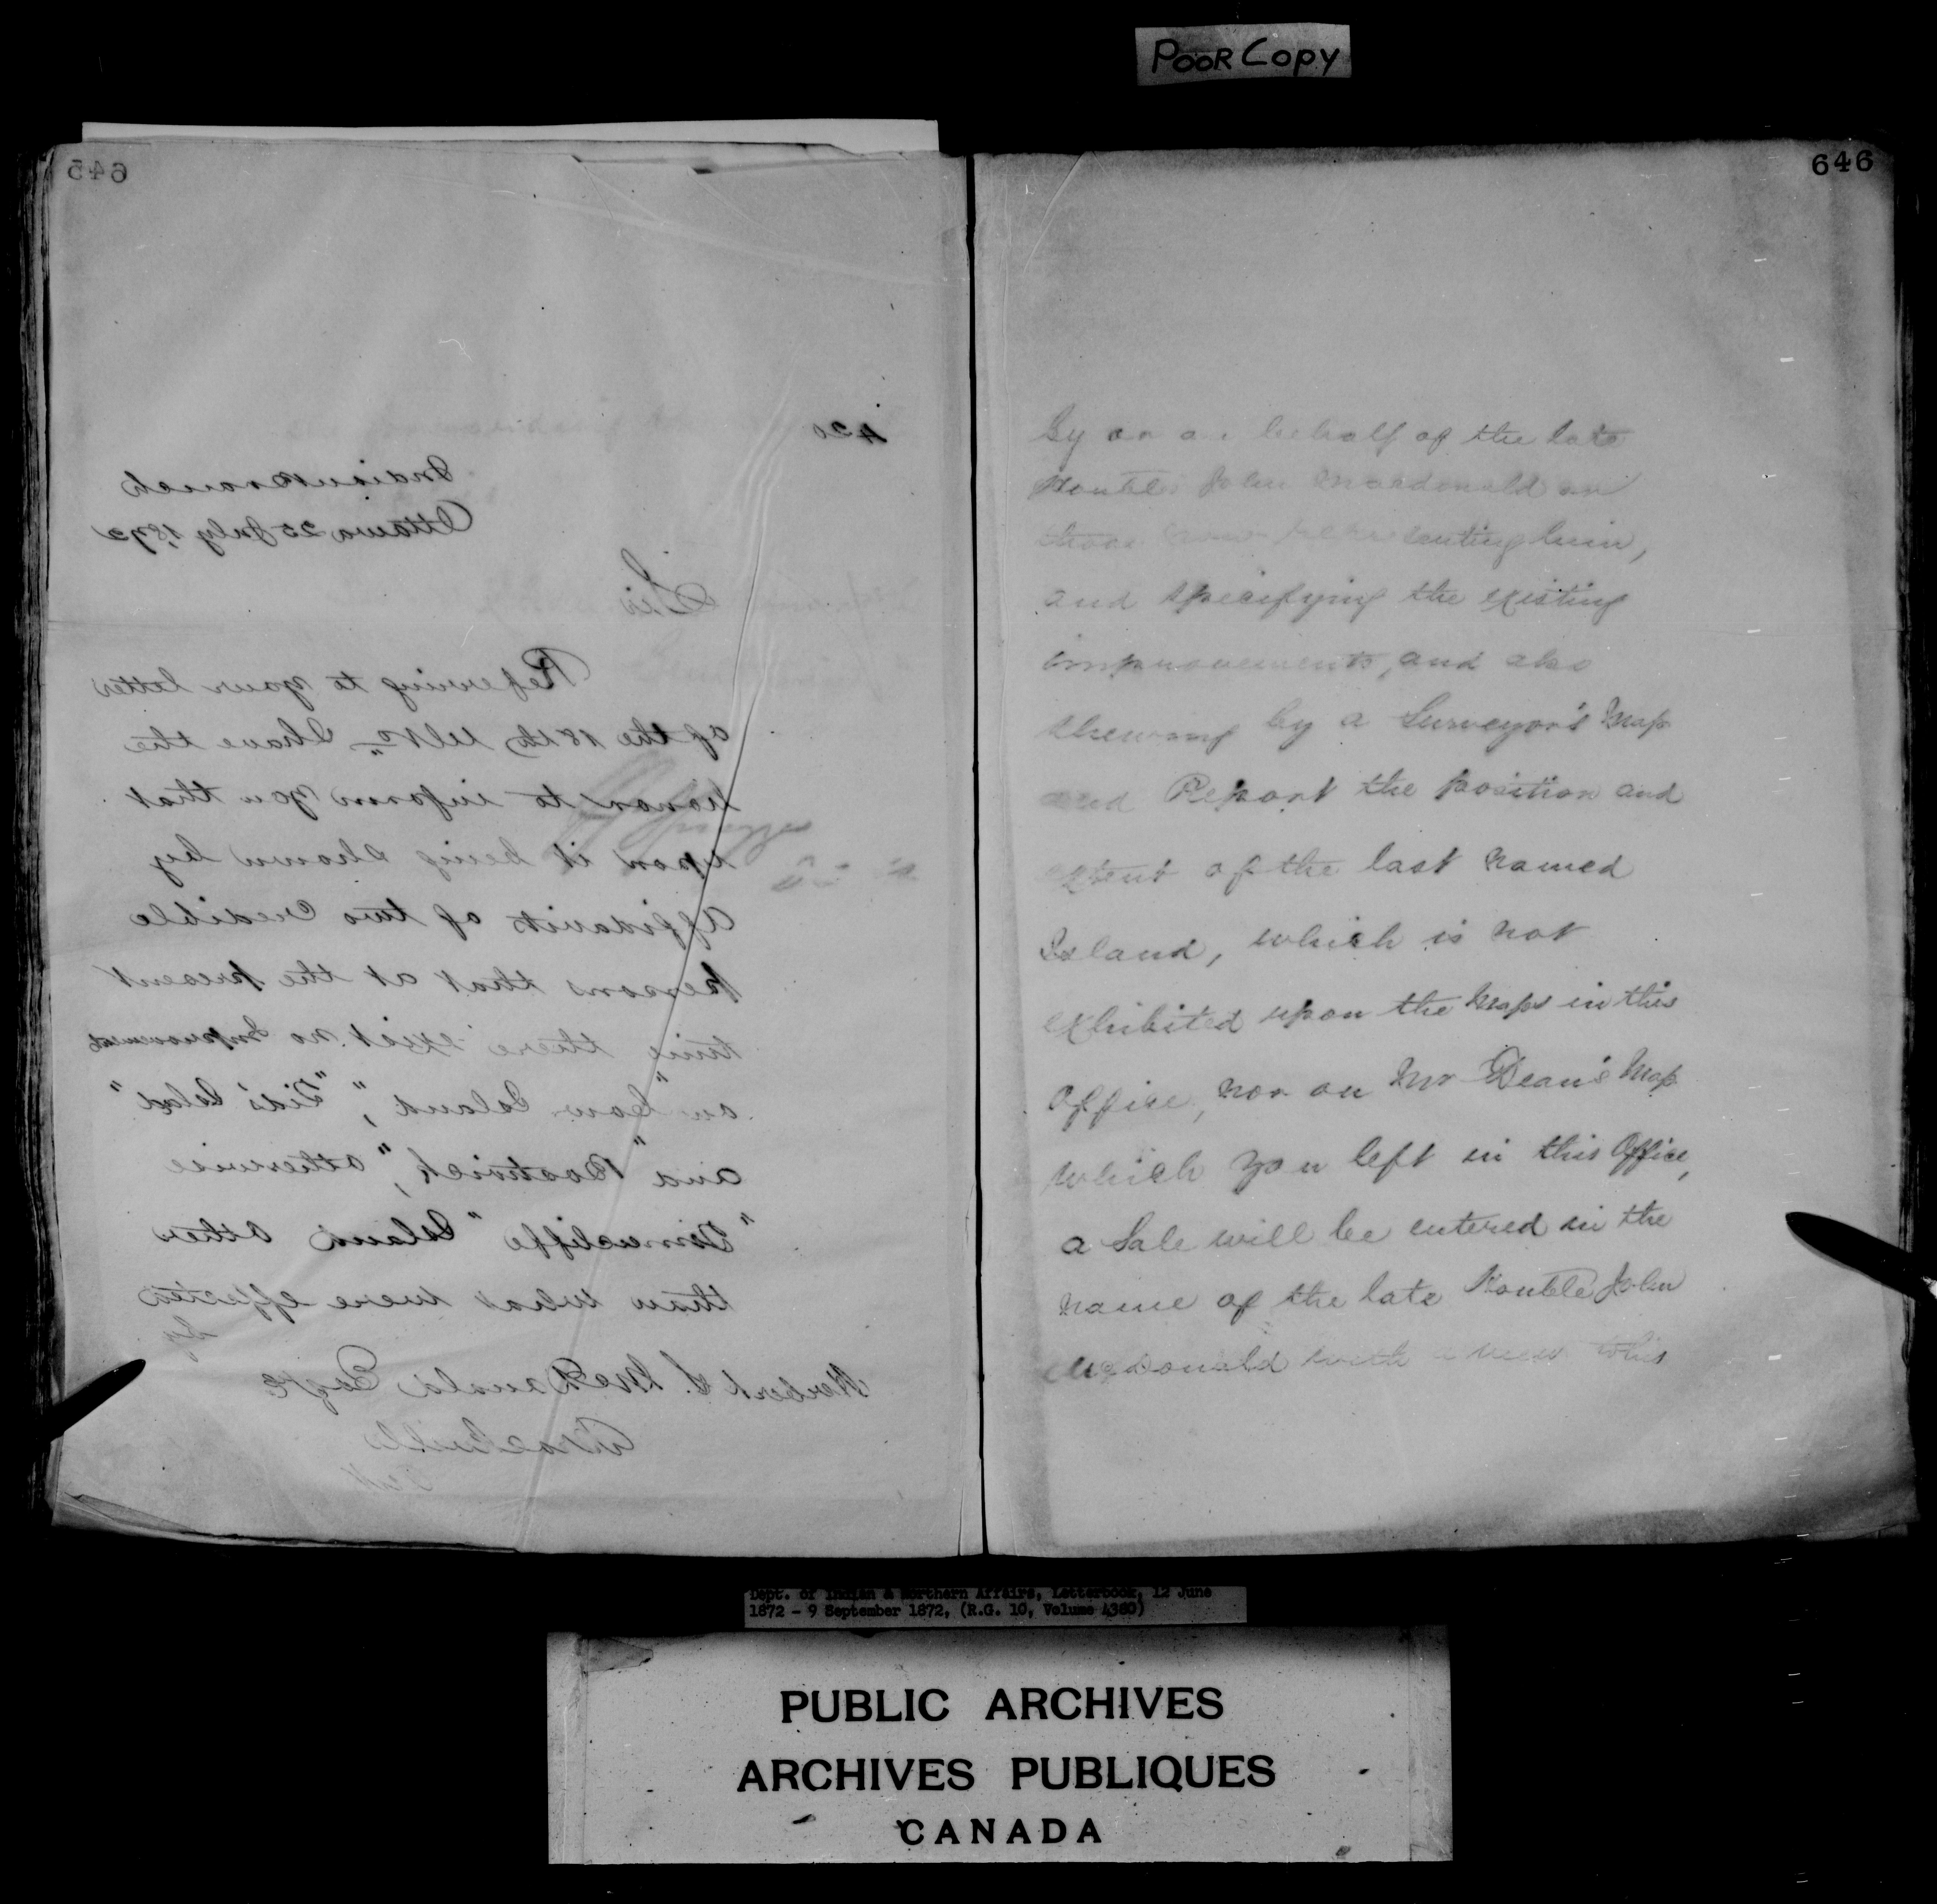 POOR COPY
645
420
Indian Branch
Ottawa 25 July 1872
Sir
Referring to your letter
of the 18th Ulto I have the
honor to inform you that
upon it being shown by
Affidavits of two Credible
persons that at the present
time there exist no Improvements
on "Cow Island", "Tids Island"
and "Bostwick", otherwise
"Dimecliffe" Island other
than what were effected
by
Herbert S. McDonald Esqre
Brockville
646
by or on behalf of the late
Honble John Macdonald or
those now representing him,
and specifying the existing
improvements, and also
shewing by a Surveyor's Map
and Report the position and
extent of the last named
Island, which is not
exhibited upon the Maps in this
Office, nor on Mr Dean's Map
which you left in this Office,
a Sale will be entered in the
name of the late Honble John
McDonald with a view this
Dept. of Indian & Northern Affairs, Letterbook, 12 June
1872 - 9 September 1872, (R.G. 10, Volume 4380)
PUBLIC ARCHIVES
ARCHIVES PUBLIQUES
CANADA